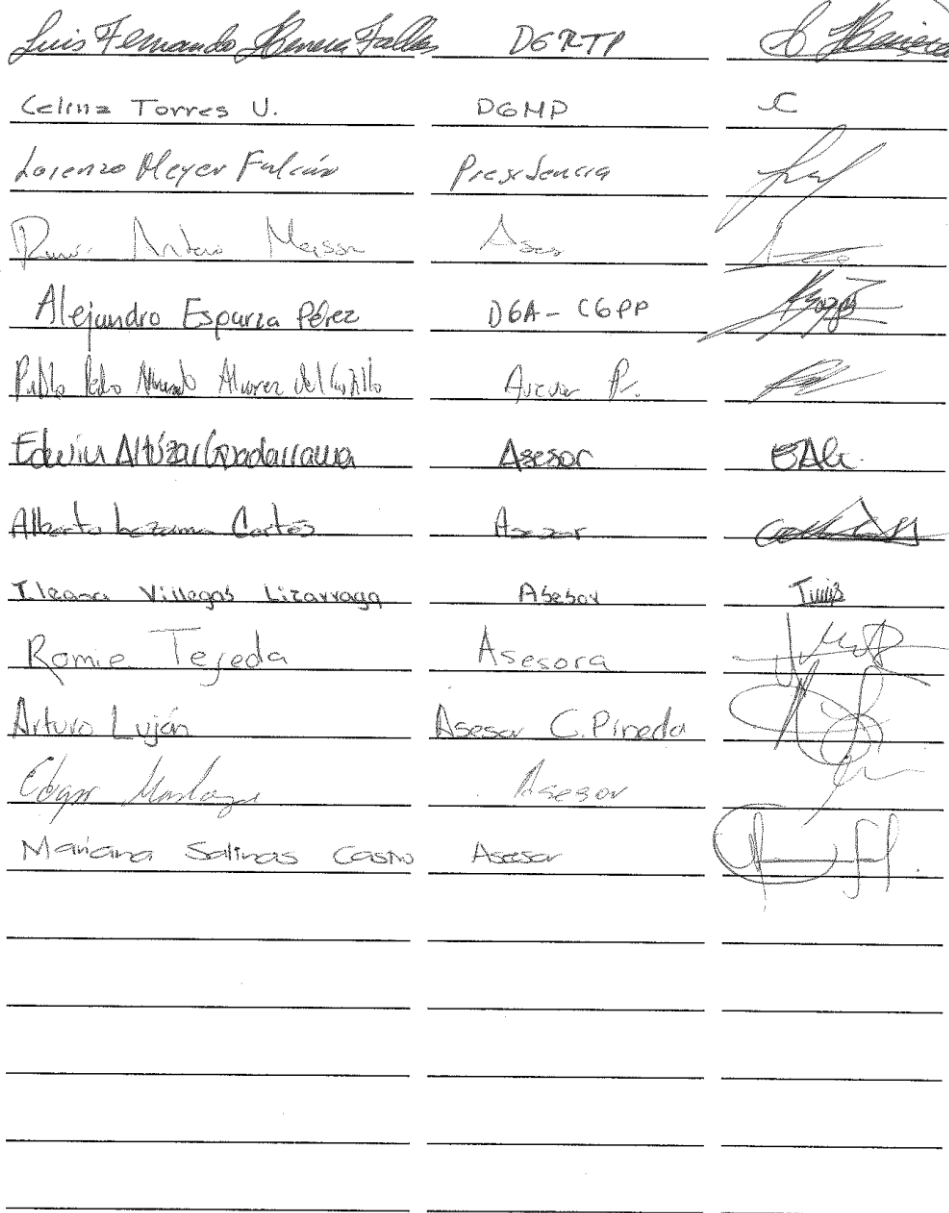 Luis Fernando Herrera Fallas DGRTP
Celina Torres U. DGMP C
Lorenzo Meyer Falcón Presidencia
Antonio
Alejandro Esparza Pérez DGA - CGPP
Pablo Pedro Alvarez del Castillo
Edwin Altúzar Guadarrama Asesor EAG.
Alberto Lezama Cortés Asesor
Ileana Villegas Lizarraga Asesor
Romie Tejeda Asesora
Arturo Luján Asesor C. Pineda
Edgar Asesor
Mariana Salinas Castro Asesor